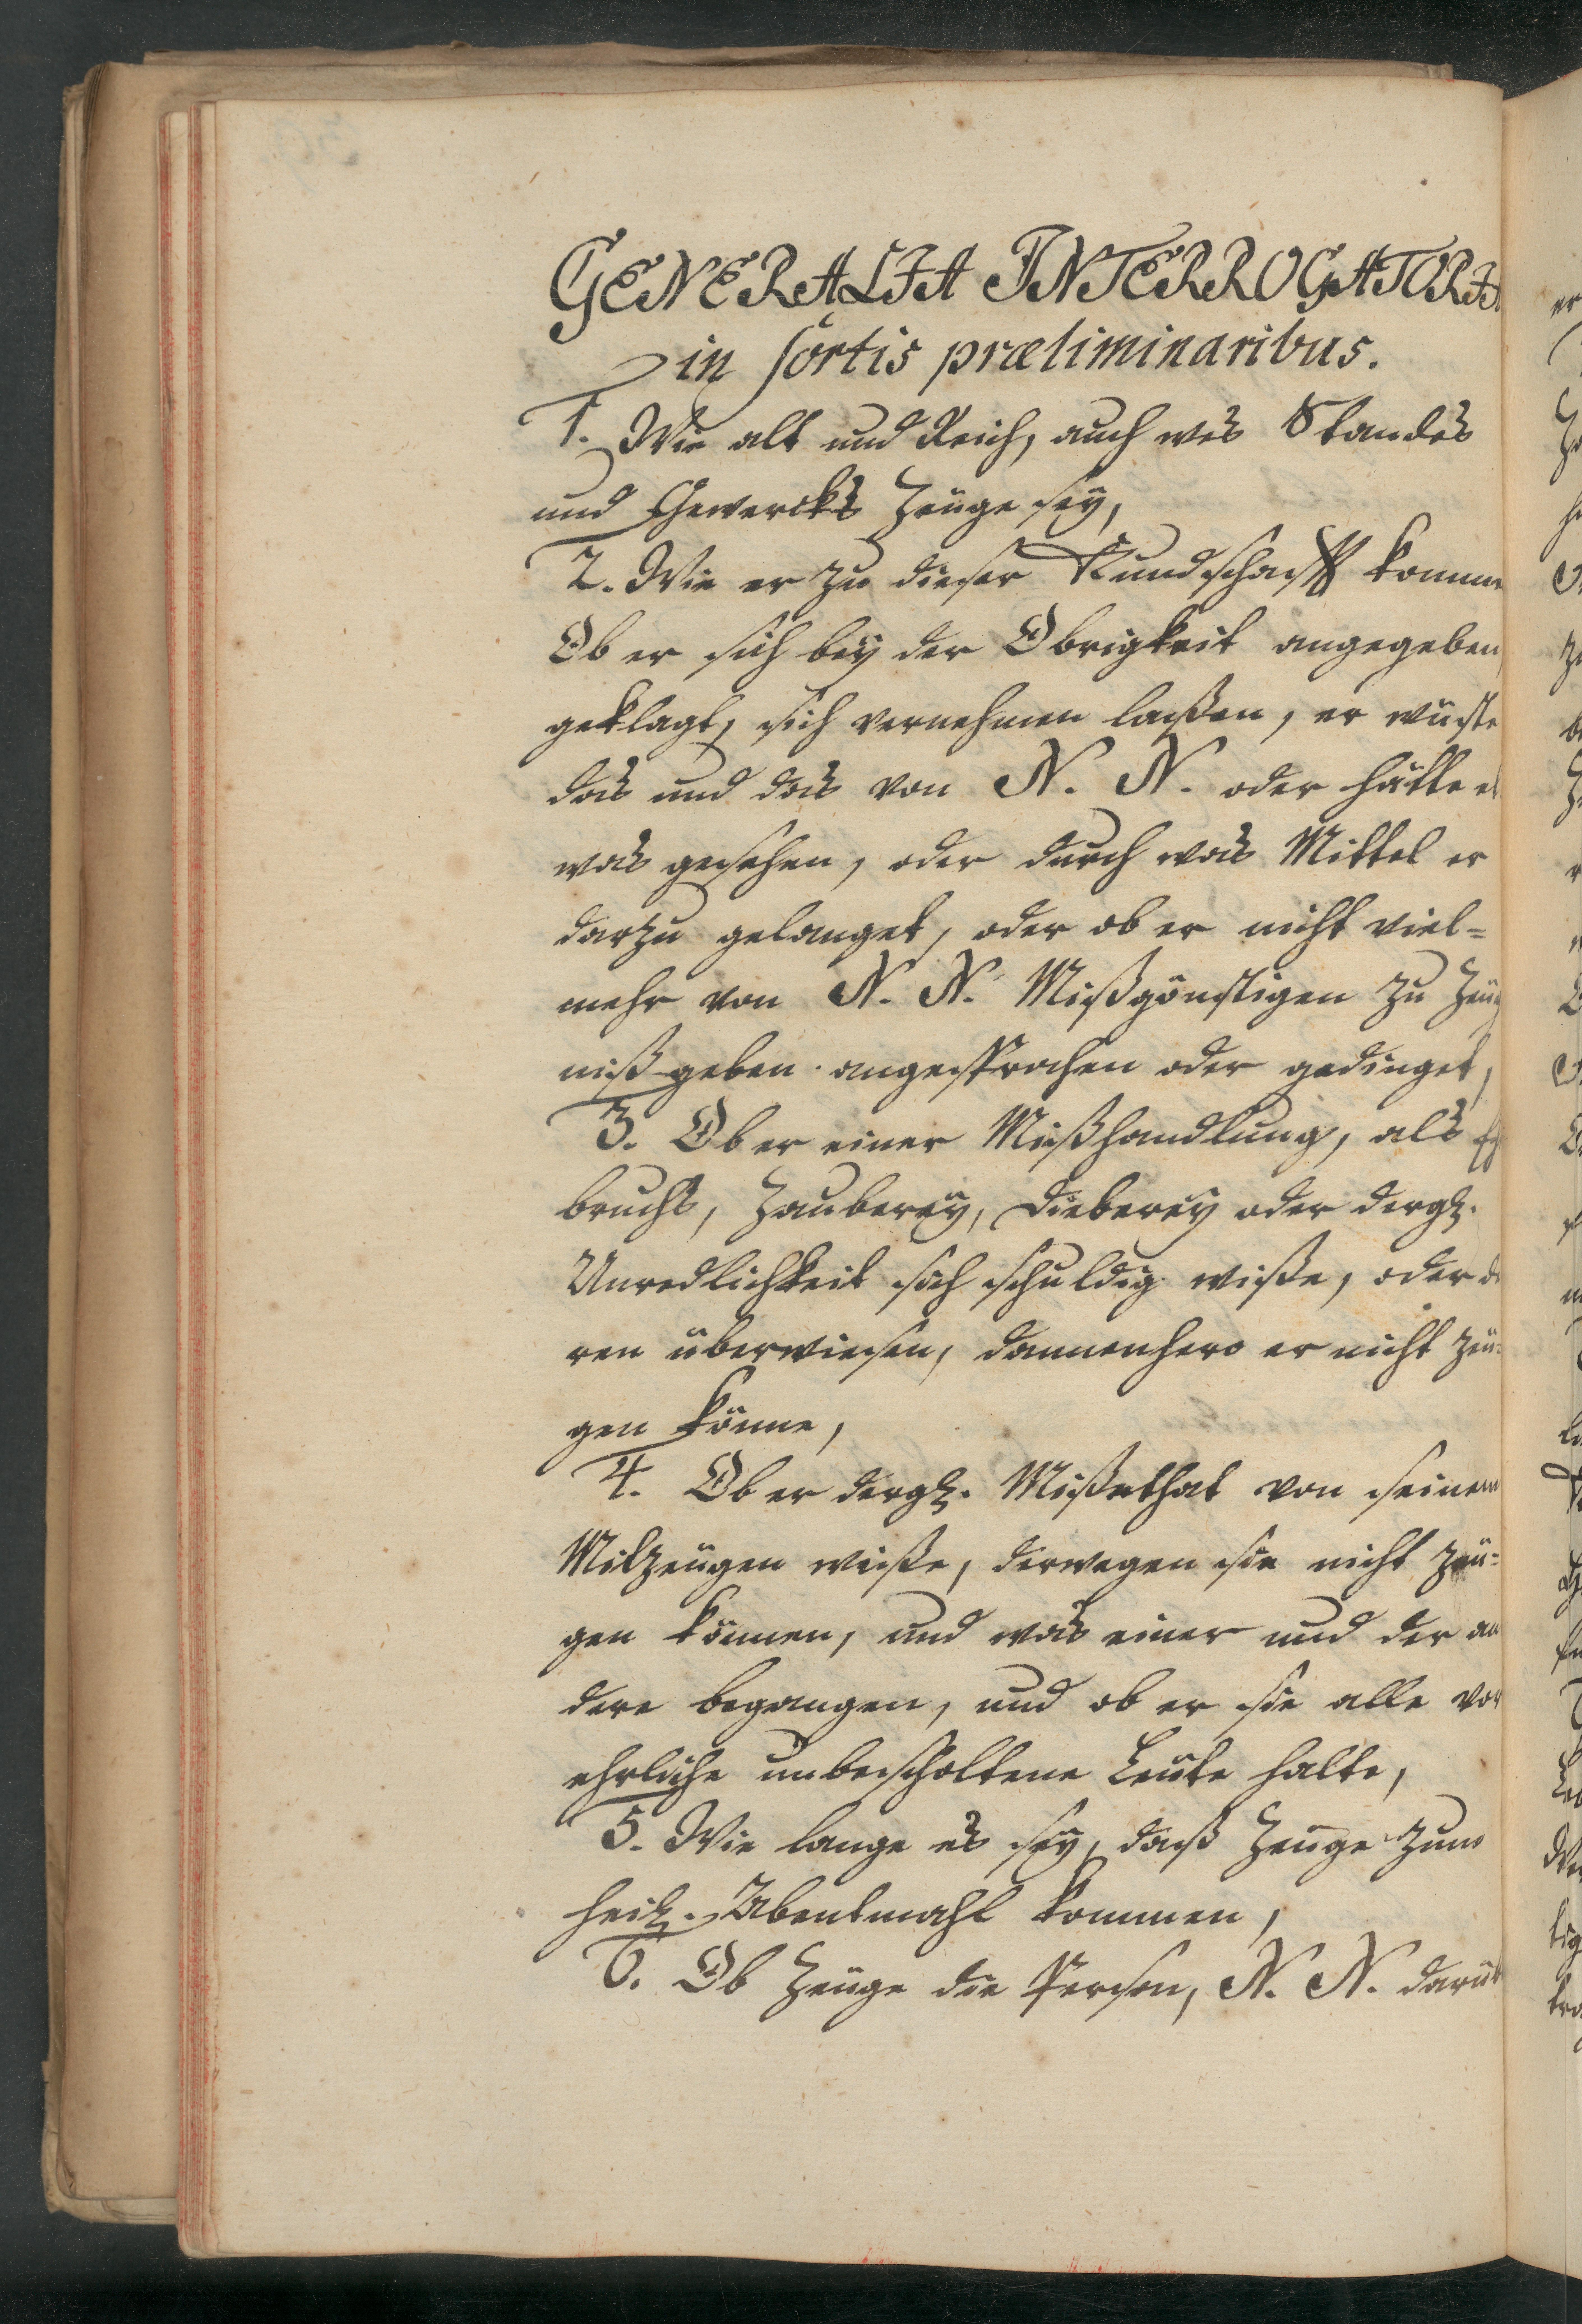 GENERALIA INTERROGATORIA
in sortis præliminaribus.
1. Wie alt und Reich, auch wes Standes
und Gewercks Zeuge sey,
2. Wie er zu dieser Kundschafft komme
Ob er sich bey der Obrigkeit angegeben,
geklagt, sich vernehmen laßen, er wüste
das und das von N. N. oder hätte et
was gesehen, oder durch was Mittel er
darzu gelanget, oder ob er nicht viel=
mehr von N. N. Mißgönstigen zu Zeüg
niß geben angesprochen oder gedinget,
3. Ob er einer Mißhandlung, als Eh
bruchs, Zauberey, Dieberey oder dergl.
Unredlichkeit sich schuldig wiße, oder de
ren überwiesen, dannenhero er nicht zeü=
gen könne,
4. Ob er dergl. Mißethat von seinem
Mitzeügen wiße, derwegen sie nicht zeü=
gen können, und was einer und der an
dere begangen, und ob er sie alle vor
ehrliche unbescholtene Leüte halte,
5. Wie lange es sey, daß Zeuge zum
heil. Abentmahl kommen,
6. Ob Zeüge die Person, N. N. darüb